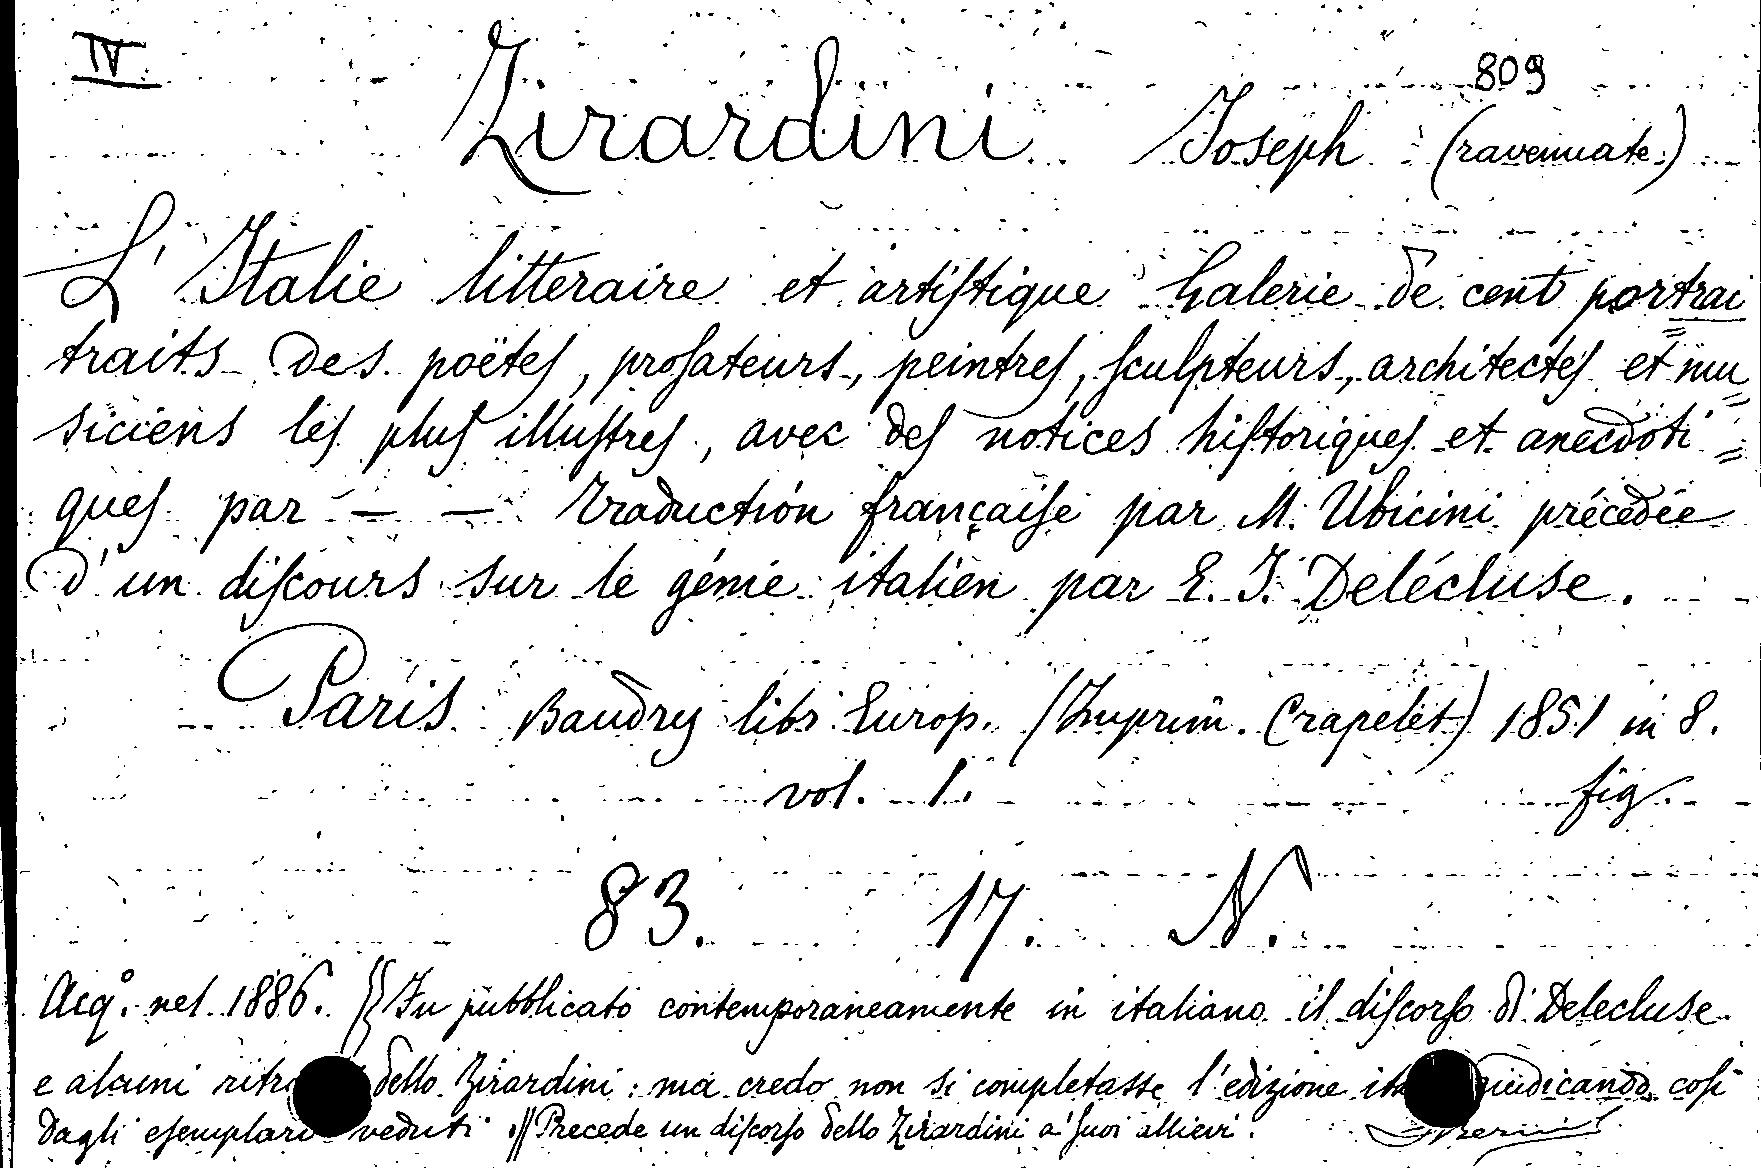 IV
809
Zirardini Joseph (ravennate.)
L'Italie litteraire et artiſtique Galerie de cent portrai
traits des poëteſ, proſateurs, peintreſ, ſculpteurs, architecteſ et mu
siciens leſ pluſ illuſtreſ, avec deſ notices hiſtoriqueſ et anecdoti=
queſ par — — traduction françaiſe par M. Ubicini précédée
d'un diſcours sur le génie italien par E. J. Delécluse.
Paris Baudry libr Europ. (Imprim. Crapelet) 1851 in 8.
vol. 1. fig.
83. 17. N.
Acqº. nel 1886. Fu pubblicato contemporaneamente in italiano il diſcorſo di Delecluse
e alcuni dello Zirardini: ma credo non si completasse l'edizione giudicando coſi
dagli eſemplari veduti. // Precede un diſcorſo dello Zirardini a' ſuoi allievi.